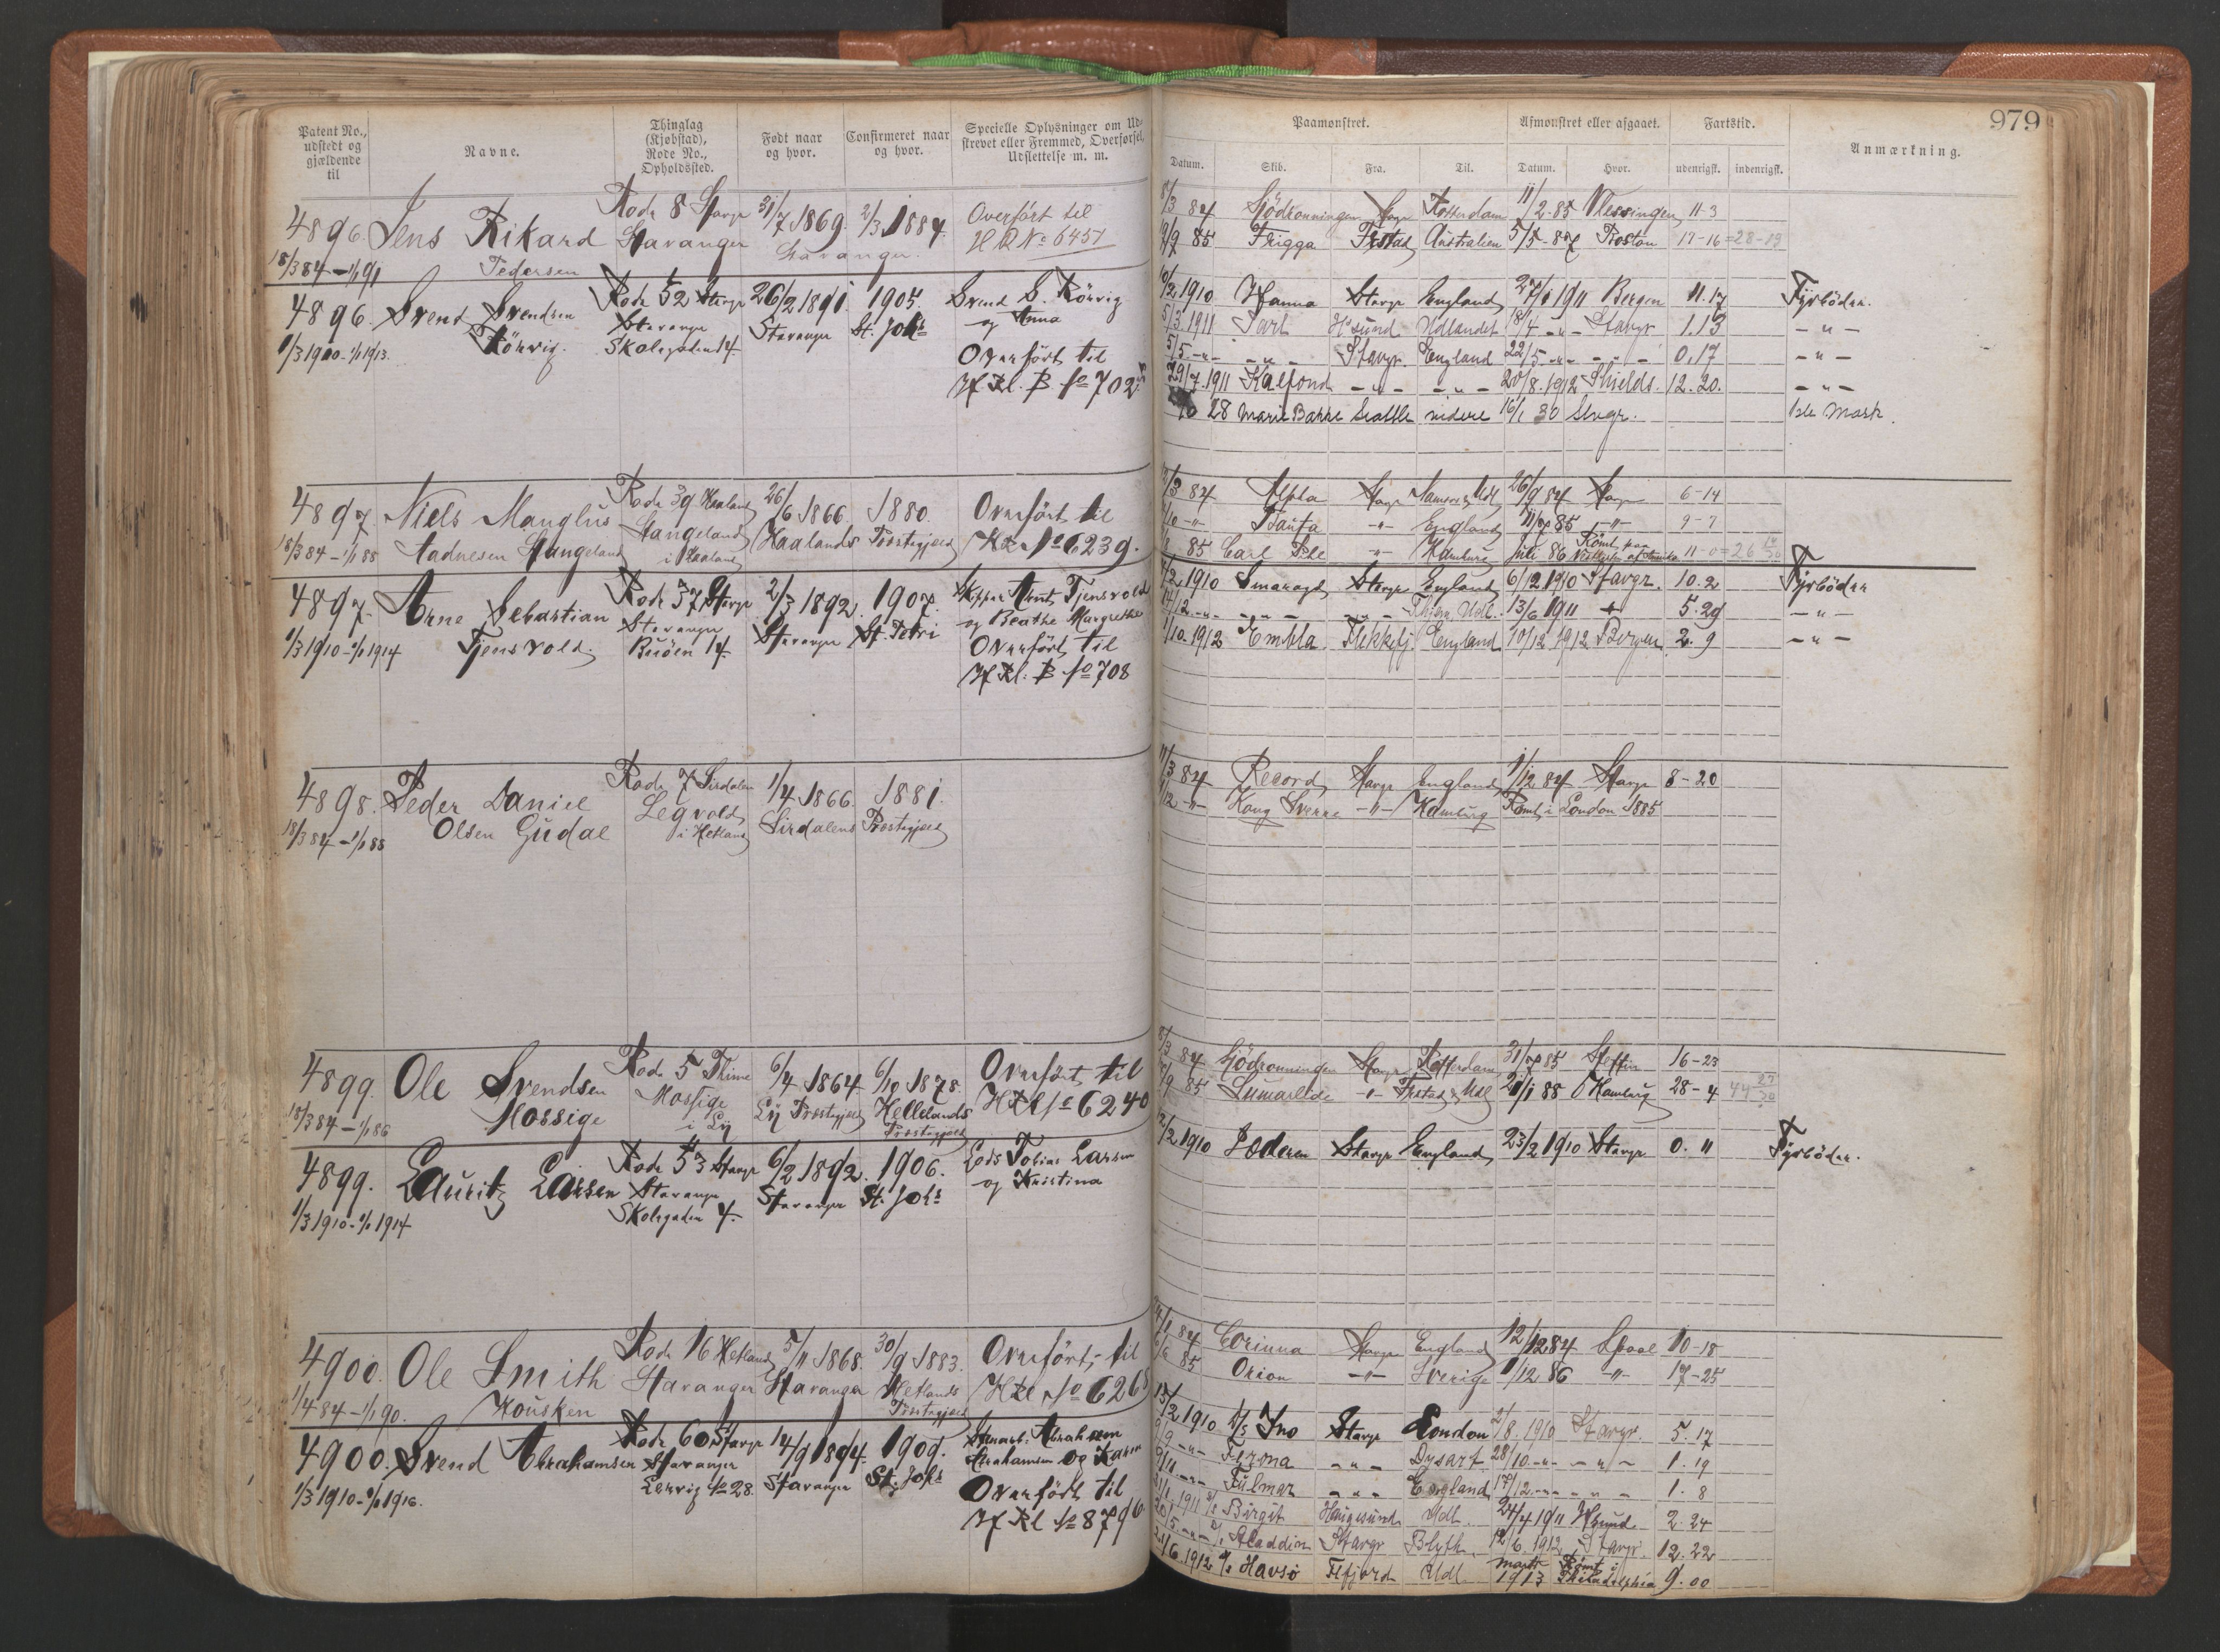 979
Patent No., udstedt og gjældende til
Navne.
Thinglag (Kjøbstad), Rode No., Opholdssted.
Født naar og hvor.
Confirmeret naar og hvor.
Specielle Oplysninger om Udskrevet eller Fremmed, Overførsel, Udslettelse m. m.
Paamønstret.
Afmønstret eller afgaaet.
Fartstid.
Anmærkning.
Datum. Skib. Fra. Til. Datum. Hvor. udenrigsk. indenrigsk.
4896. Jens Rikard Pedersen
18/3 84 - 1/1 91
Rode 8 Stavgr
Stavanger
31/7 1869. 2/3 1884.
Stavanger.
Overført til
H R No 6451
84 Södkonningen Stavgr Rotterdam 11/2 85 Vlessingen 11-3
85 Frigga Frstad Australien 5/5 - 87 Boston 17-16 = 28-19
4896. Svend Svendsen
Rörvig.
1/3 1910 - 1/1 1913.
Rode 52 Stavgr
Stavanger
Skolegaden 14
26/2 1891. 1905.
Stavanger St. Johs
Svend S. Rörvig
og Anna
Overført til
H Rl. B No 702
/2 1910 Hanna Stavgr England 27/1 1911 Bergen 11.17 Fyrböder.
5/3 1911 Jarl H'sund Udlandet 18/4 -"- Stavgr. 1.13 -"-
5/5 -"- -"- Stavgr. England 22/5 -"- -"- 0.17 -"-
29/7 1911 Kalfond -"- -"- 20/8. 1912 Shields. 12.20. -"-
28 Marie Bakke Seattle videre 16/1 30 Stvgr. 1ste Mask.
4897 Niels Manglus
Aadnesen Stangeland
18/3 84 - 1/1 88
Rode 39 Haaland
Stangeland
i Haaland
26/6 1866 1880.
Haalands Præstegjæld
Overført til
H Rl No 6239.
/3 84 Alpha Stavgr 26/9 84 Stavgr 6-14
/10 -"- Tauta -"- England 85 -"- 9-7
85 Carl Pihl -"- Hamburg Juli 86 Rømt paa 11-0 = 26
4897. Arne Sebastian
Tjensvold.
1/3 1910 - 1/1 1914
Rode 37 Stavgr
Stavanger
Buöen 14.
2/3 1892. 1907.
Stavanger St. Petri
Skipper Arnt Tjensvold
og Beathe Margrethe
Overført til
H Rl. B No 708
/2 1910 Smaragd Stavgr England 6/12 1910 Stavgr. 10.2 Fyrböder
/12 -"- -"- -"- Udl. 13/6 1911 5.29 -"-
/10. 1912 Embla Flekkefj. England 10/12 1912 Bergen 2.9 -"-
4898. Peder Daniel
Olsen Gudal
18/3 84 - 1/1 88
Rode 7 Sirdalen
Legvold
i Hetland
1/4 1866. 1881.
Sirdalens Præstegjæld
/3 84 Record Stavgr England 1/12 84 Stavgr 8-20
/12 -"- Kong Sverre -"- Hamburg Rømt i London 1885
4899. Ole Svendsen
Mossige
18/3 84 - 1/1 86
Rode 5 Thime
Mossige
i Ly
6/4 1864. 6/10 1878
Ly Præstegjæld Hellelands Præstegjæld
Overført til
H Rl No 6240
/3 84 Södkonningen Stavgr Rotterdam 31/7 85 Stettin 16-23
/9 85 Lumarlide -"- Frstad & Udl 20/1 88 Hamburg 28-4
4899. Lauritz Larsen
1/3 1910 - 1/1 1914
Rode 53 Stavgr
Stavanger
Skolegaden 4.
6/2 1892. 1906.
Stavanger St. Johs
Lods Tobias Larsen
og Kristina
/2 1910 Jæderen Stavgr England 23/2 1910 Stavgr 0.11 Fyrböder.
4900. Ole Smith
Housken
1/4 84 - 1/1 90.
Rode 16 Hetland
Stavanger
5/11 1868. 30/9 1883.
Stavanger Hetlands Præstegjæld
Overført til
H Rl No 626
84 Corinna Stavgr England 12/12 84 Lpool 10-18
85 Orion -"- Sverige 1/12 86 -"- 17-25
4900. Svend Abrahamsen
1/3 1910 - 1/1 1916.
Rode 60 Stavgr
Stavanger
Lervig No 28.
14/9 1894. 1909.
Stavanger St. Johs
Abraham
Abrahamsen og Karen
Overført til
H Rl No 879
15/2 1910 D/S Ino Stavgr London 2/8. 1910 Stavgr. 5.17
/9 -"- Fezona -"- Dysart 28/10 -"- -"- 1.19
/11 -"- Fulmar -"- England 17/12 -"- -"- 1.8
1911 Birgit Haugesund Udl. 24/4 1911 H'sund. 2.24
/5 -"- Aladdin Stavgr Blyth. 12/6. 1912 Stavgr. 12.22
/6. 1912 Havsö Flfjord Udl. Marts 1913 Rømt i Philadelphia 9.00